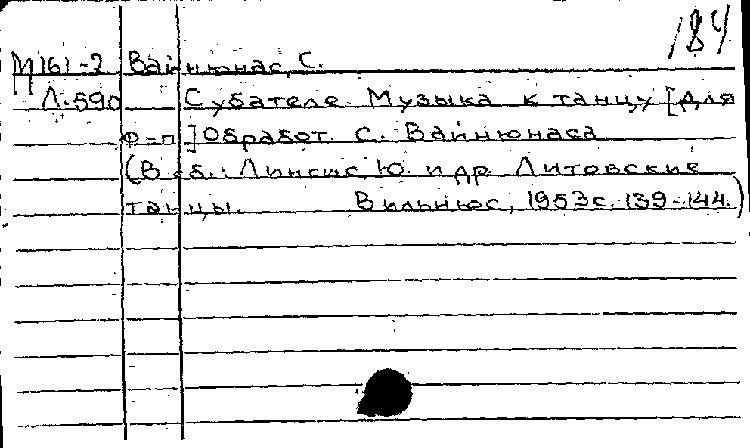 184
М161-2 Вайнюнас, С.
Л-590 Субателе. Музыка к танцу [Для
ф=п.] Обработ. С. Вайнюнаса
(В сб.: Лингис, Ю. и др. Литовские
танцы. Вильнюс, 1953 с. 139-144.)